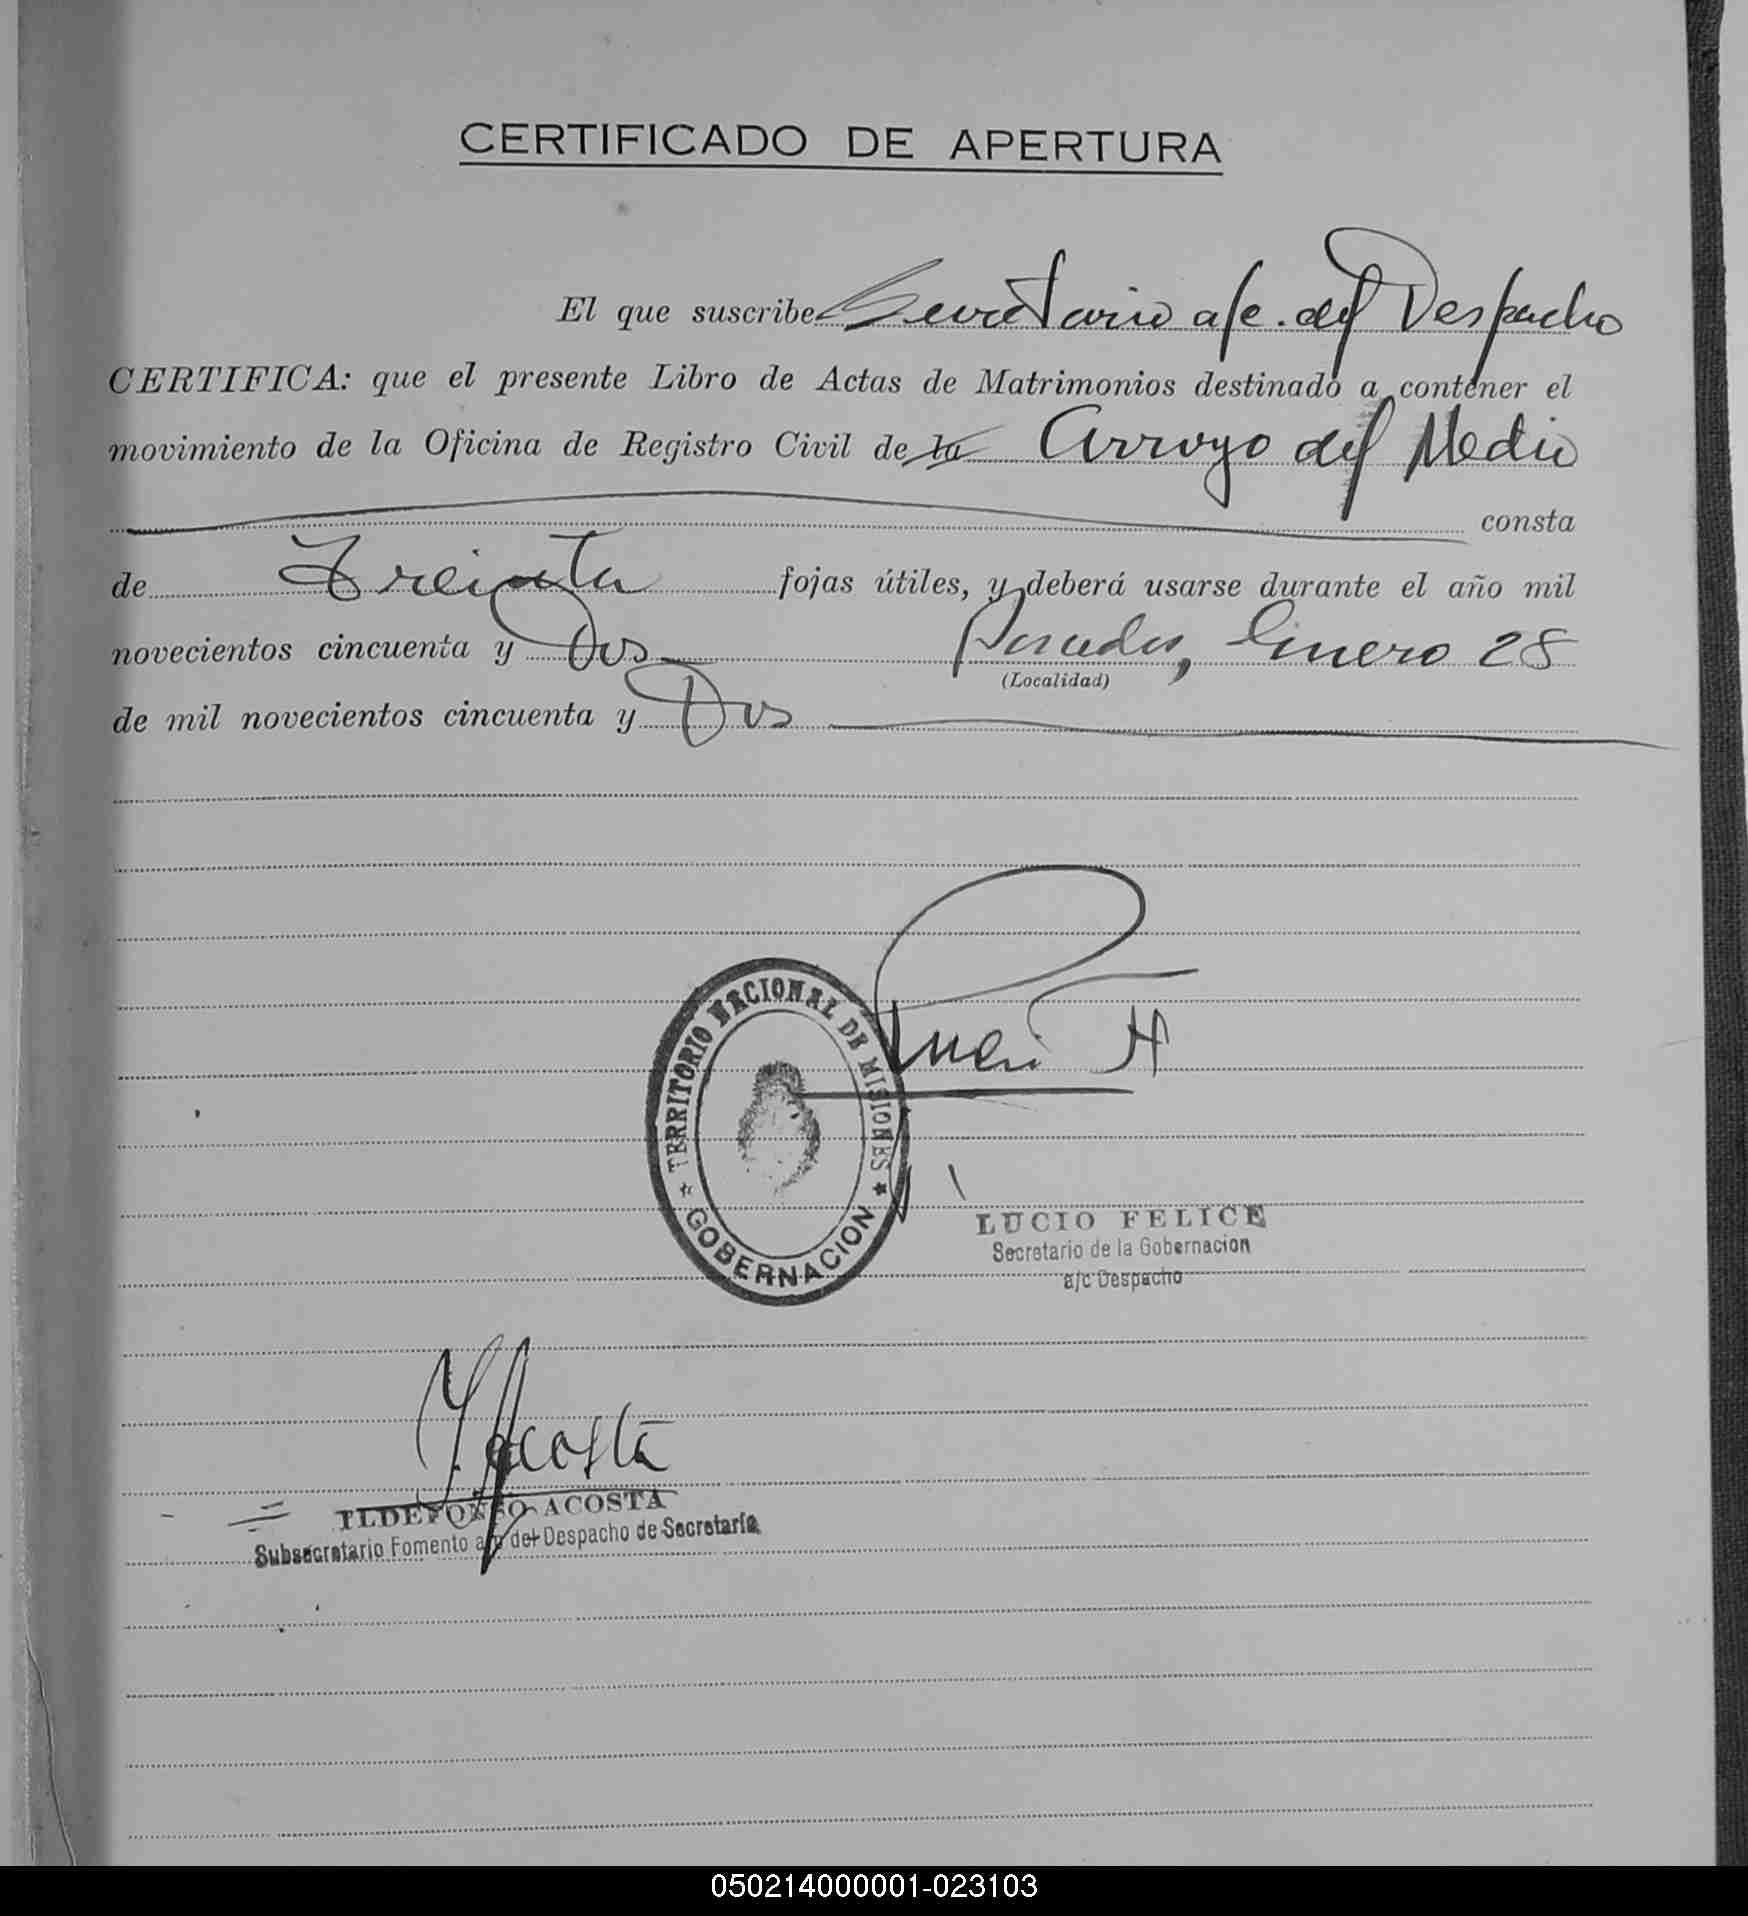 CERTIFICADO DE APERTURA
El que suscribe Secretario a/c. del Despacho
CERTIFICA: que el presente Libro de Actas de Matrimonios destinado a contener el
movimiento de la Oficina de Registro Civil de la Arroyo del Medio
consta
de Treinta fojas útiles, y deberá usarse durante el año mil
novecientos cincuenta y Dos Posadas, Enero 28
(Localidad)
de mil novecientos cincuenta y Dos
TERRITORIO NACIONAL DE MISIONES
GOBERNACION
LUCIO FELICE
Secretario de la Gobernacion
a/c Despacho
I. Acosta
ILDEFONSO ACOSTA
Subsecretario Fomento del Despacho de Secretaría
050214000001-023103